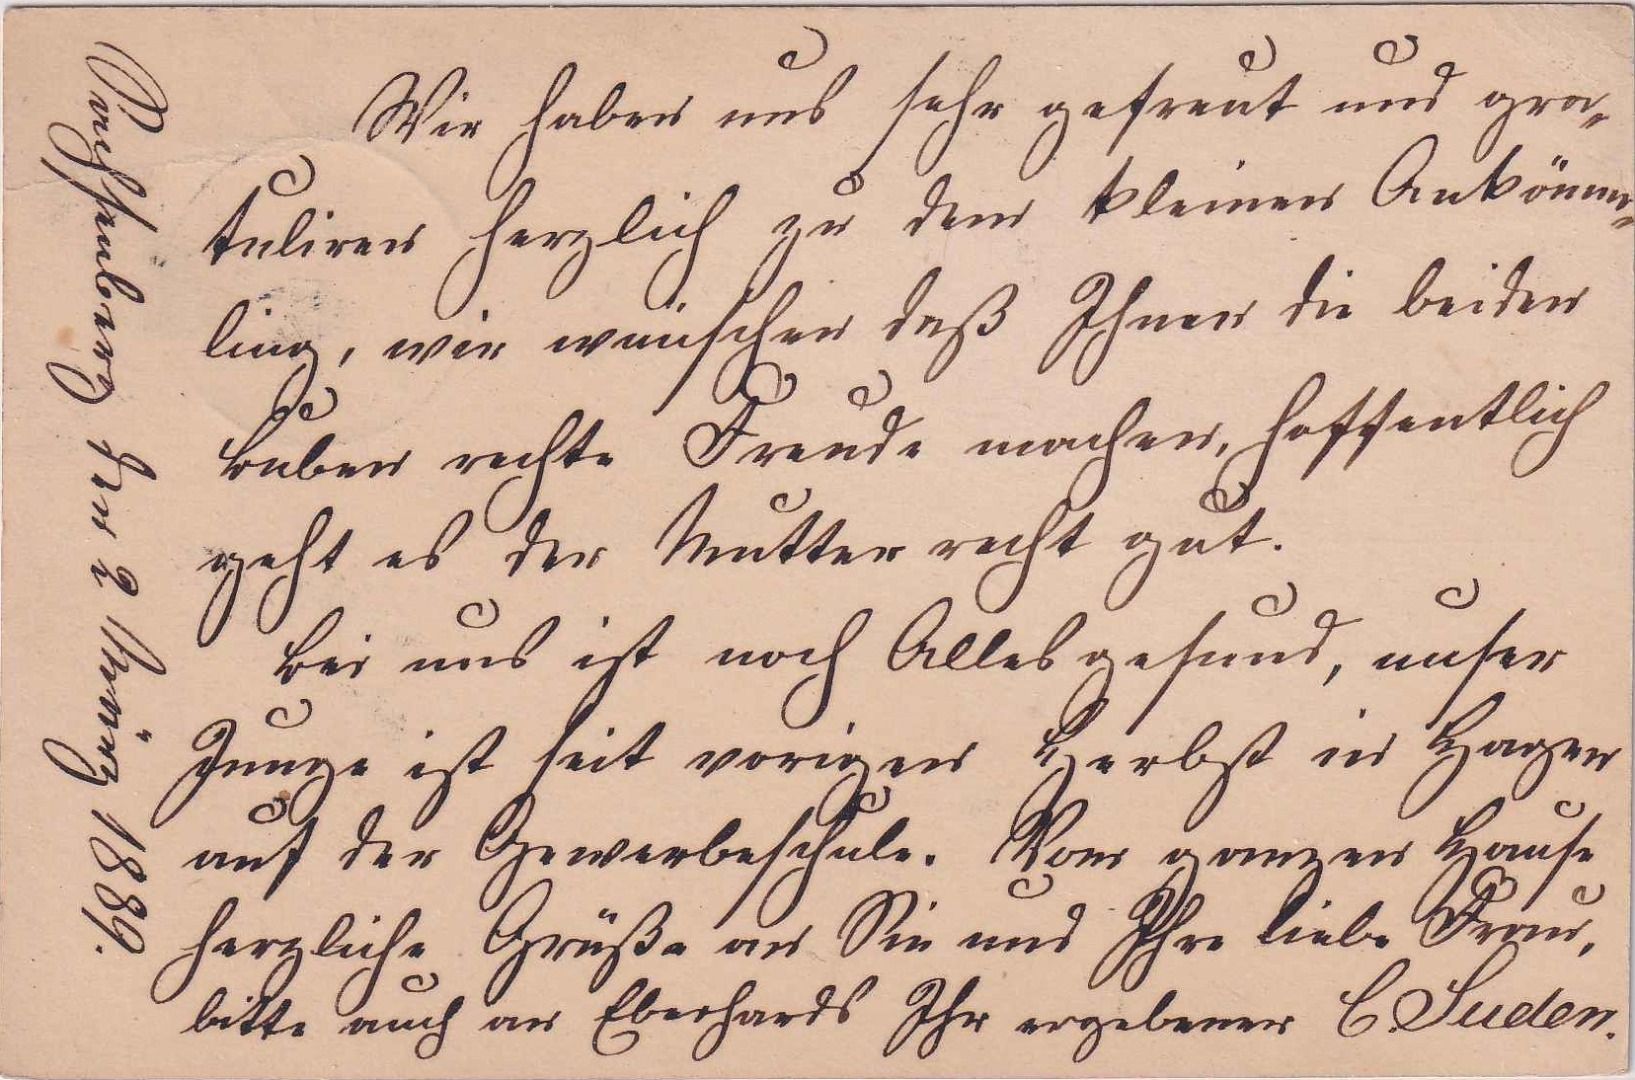 Wir haben uns sehr gefreut und gra-
tuliren herzlich zu dem kleinen Ankömm-
ling, wir wünschen daß Ihnen die beiden
Buben rechte Freude machen, hoffentlich
geht es der Mutter recht gut.
Bei uns ist noch Alles gesund, unser
Junge ist seit vorigen Herbst in Hagen
auf der Gewerbeschule. Vom ganzen Hause
herzliche Grüße an Sie und Ihre liebe Frau,
bitte auch an Eberhards Ihr ergebener C. Suden.
2 März 1889.